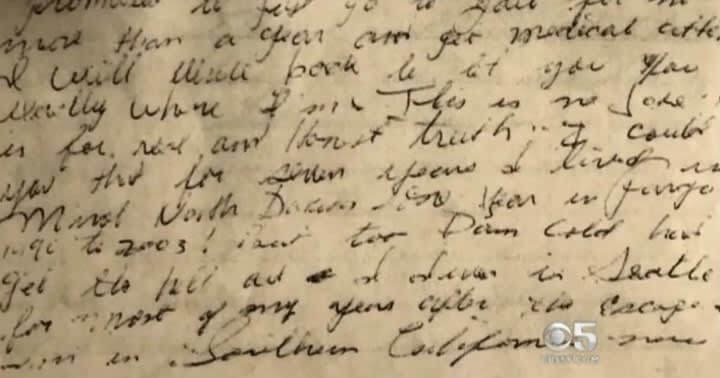 promised to first go to jail for no
more than a year and get medical atte
I will write back to let you
exactly where I am This is no Joke
is for real and Honest truth I could
you that for seven years I lived in
Minot North Dakota year in Fargo
to 2003! but too Dam Cold had
get the hell out I live in Seattle
for most of my years after the escape
in Southern California now
CBS 5